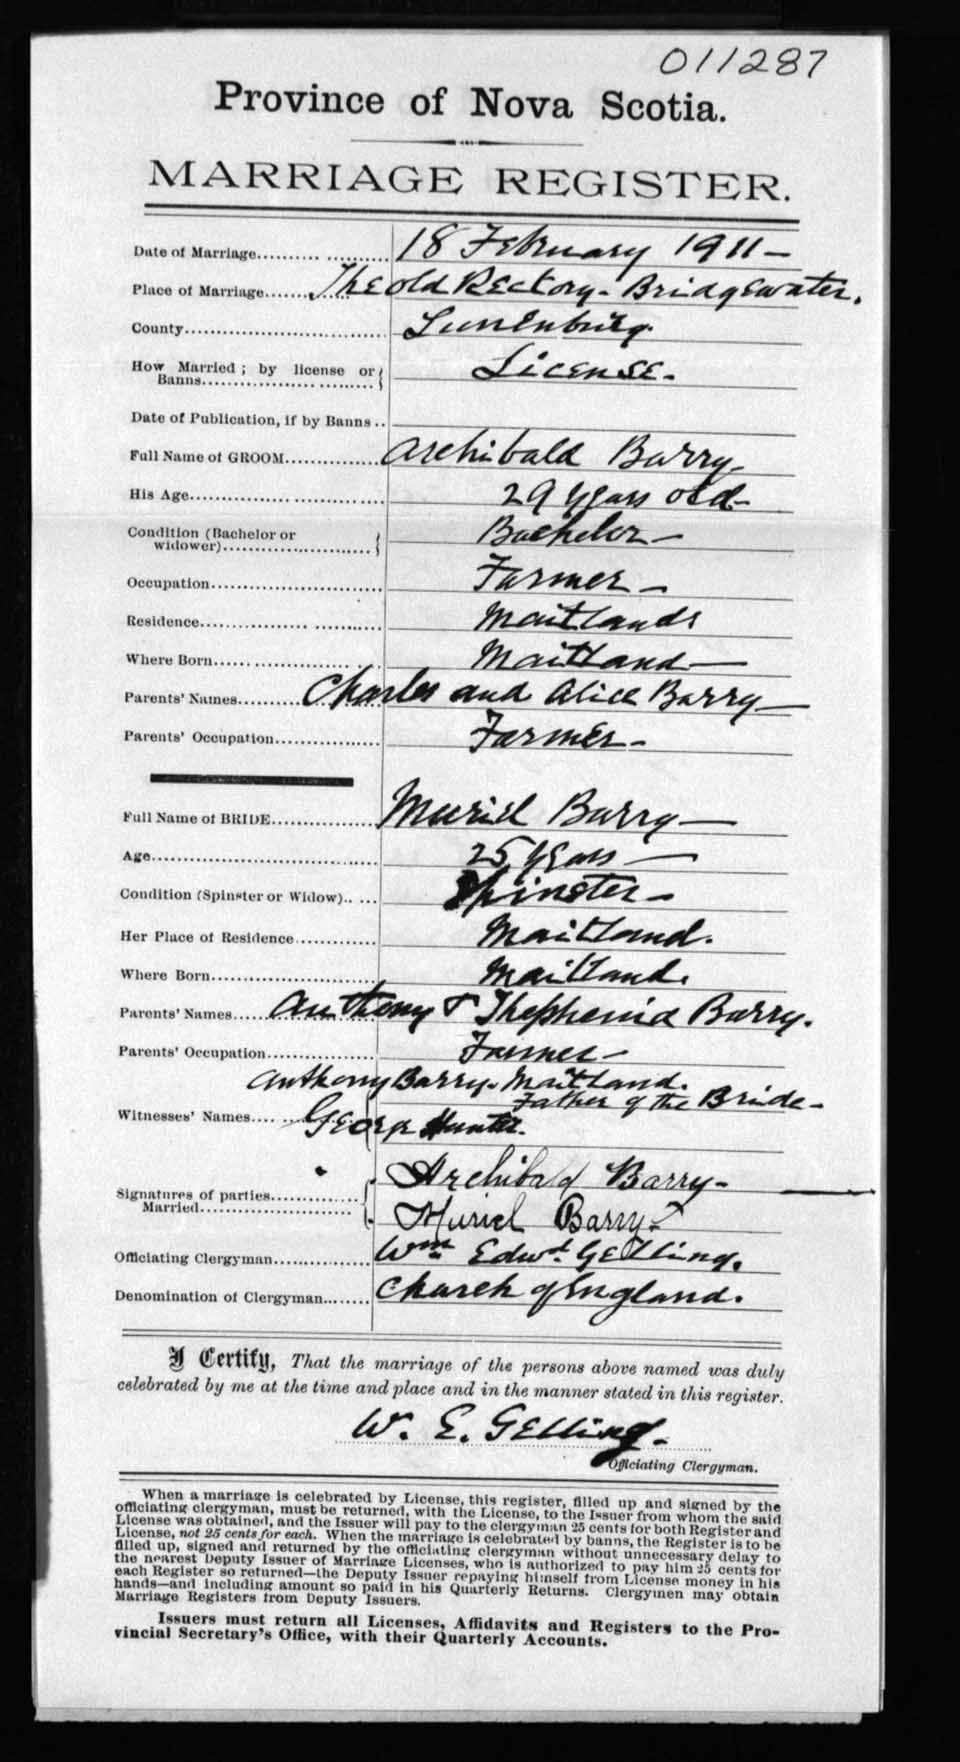 011287
Province of Nova Scotia.
MARRIAGE REGISTER.
Date of Marriage 18 February 1911 —
Place of Marriage The old Rectory - Bridgewater.
County Lunenburg.
How Married; by license or Banns License.
Date of Publication, if by Banns
Full Name of GROOM Archibald Barry
His Age 29 years old
Condition (Bachelor or widower) Bachelor —
Occupation Farmer —
Residence Maitland
Where Born Maitland —
Parents' Names Charles and Alice Barry —
Parents' Occupation Farmer -
Full Name of BRIDE Muriel Barry —
Age 25 years —
Condition (Spinster or Widow) Spinster —
Her Place of Residence Maitland.
Where Born Maitland.
Parents' Names Anthony & Barry.
Parents' Occupation Farmer -
Anthony Barry. Maitland.
Father of the Bride -
Witnesses' Names George Hunter.
Signatures of parties Married Archibald Barry -
Muriel Barry
Officiating Clergyman Wm Edwd. Gelling.
Denomination of Clergyman Church of England.
I Certify, That the marriage of the persons above named was duly
celebrated by me at the time and place and in the manner stated in this register.
W. E. Gelling.
Officiating Clergyman.
When a marriage is celebrated by License, this register, filled up and signed by the
officiating clergyman, must be returned, with the License, to the Issuer from whom the said
License was obtained, and the Issuer will pay to the clergyman 25 cents for both Register and
License, not 25 cents for each. When the marriage is celebrated by banns, the Register is to be
filled up, signed and returned by the officiating clergyman without unnecessary delay to
the nearest Deputy Issuer of Marriage Licenses, who is authorized to pay him 25 cents for
each Register so returned—the Deputy Issuer repaying himself from License money in his
hands—and including amount so paid in his Quarterly Returns. Clergymen may obtain
Marriage Registers from Deputy Issuers.
Issuers must return all Licenses, Affidavits and Registers to the Pro-
vincial Secretary's Office, with their Quarterly Accounts.